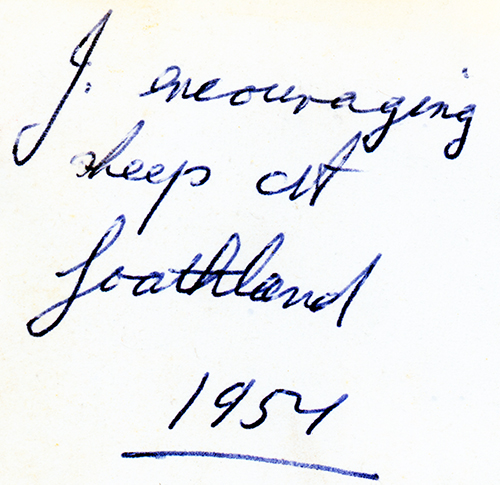 J. encouraging
sheep at
Southland
1954